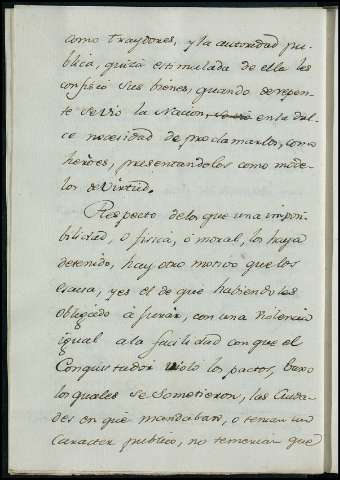 como traydores, y la autoridad pu-
blica, quizá estimulada de ella les
confiscó sus bienes, quando derepen-
te se vió la Nacion, en la dul-
ce necesidad de proclamarlos, como
heróes, presentandolos como mode-
los de virtud.
Respecto delos que una impôsi-
bilidad, ó fisica, ó moral, los haya
detenido, hay otro motivo que los
escusa, y es el de que habiendoles
obligado á jurár, con una violencia
igual ala facilidad con que el
Conquistador violó los pactos, baxo
los quales se sometieron, las Ciuda-
des en que mandaban, ó tenian un
caracter publico, no temerian que